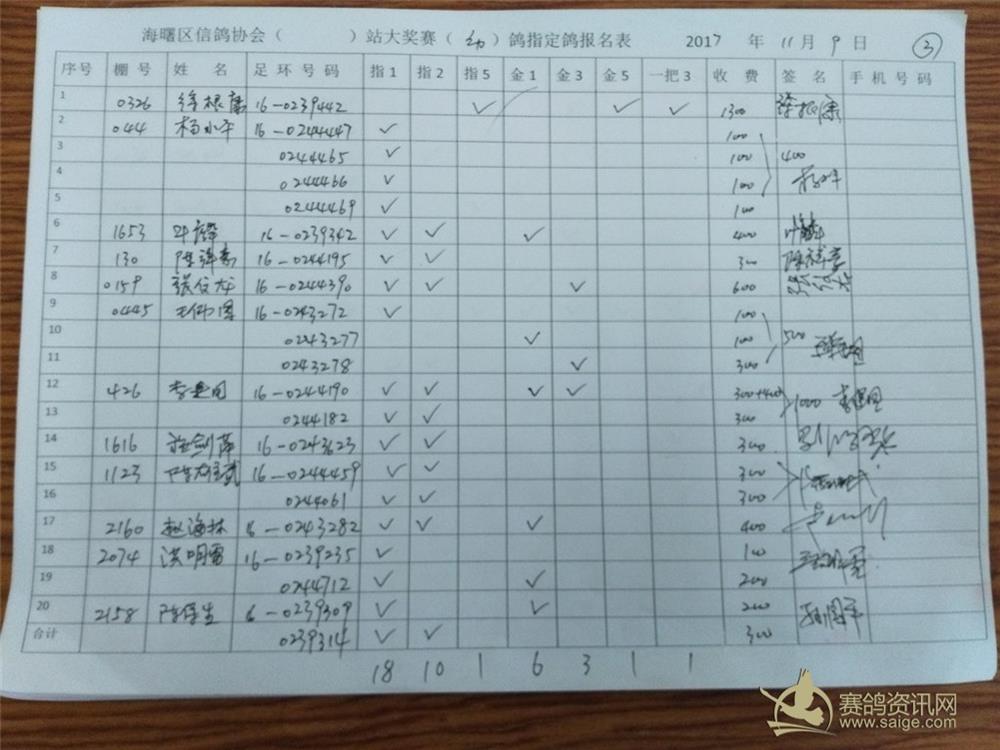 海曙区信鸽协会（ ）站大奖赛（幼）鸽指定鸽报名表 2017 年 11 月 9 日 ③
序号 棚号 姓名 足环号码 指1 指2 指5 金1 金3 金5 一把3 收费 签名 手机号码
1 0326 徐根康 16-0239442 ✓ ✓ ✓ 1300 徐根康
2 044 杨小平 16-0244447 ✓ 100
3 0244465 ✓ 100 400
4 0244466 ✓ 100
5 0244469 ✓ 100
6 1653 叶 16-0239342 ✓ ✓ ✓ 400 叶
7 130 陈 16-0244195 ✓ ✓ 300 陈
8 0159 张 16-0244390 ✓ ✓ ✓ 600 张
9 0445 王伟国 16-0243272 ✓ 100
10 0243277 ✓ 100 500
11 0243278 ✓ 300
12 426 李建国 16-0244190 ✓ ✓ ✓ ✓ 300+400 1000 李建国
13 0244182 ✓ ✓ 300
14 1616 剑萍 16-0243623 ✓ ✓ 300
15 1123 陈 武 16-0244459 ✓ ✓ 300
16 0244061 ✓ ✓ 300
17 2160 赵海林 16-0243282 ✓ ✓ ✓ 400
18 2074 洪明雷 16-0239235 ✓ 100
19 0244712 ✓ ✓ 200
20 2158 陈 生 16-0239309 ✓ ✓ 200
合计 0239314 ✓ ✓ 300
18 10 1 6 3 1 1
赛鸽资讯网
www.saige.com